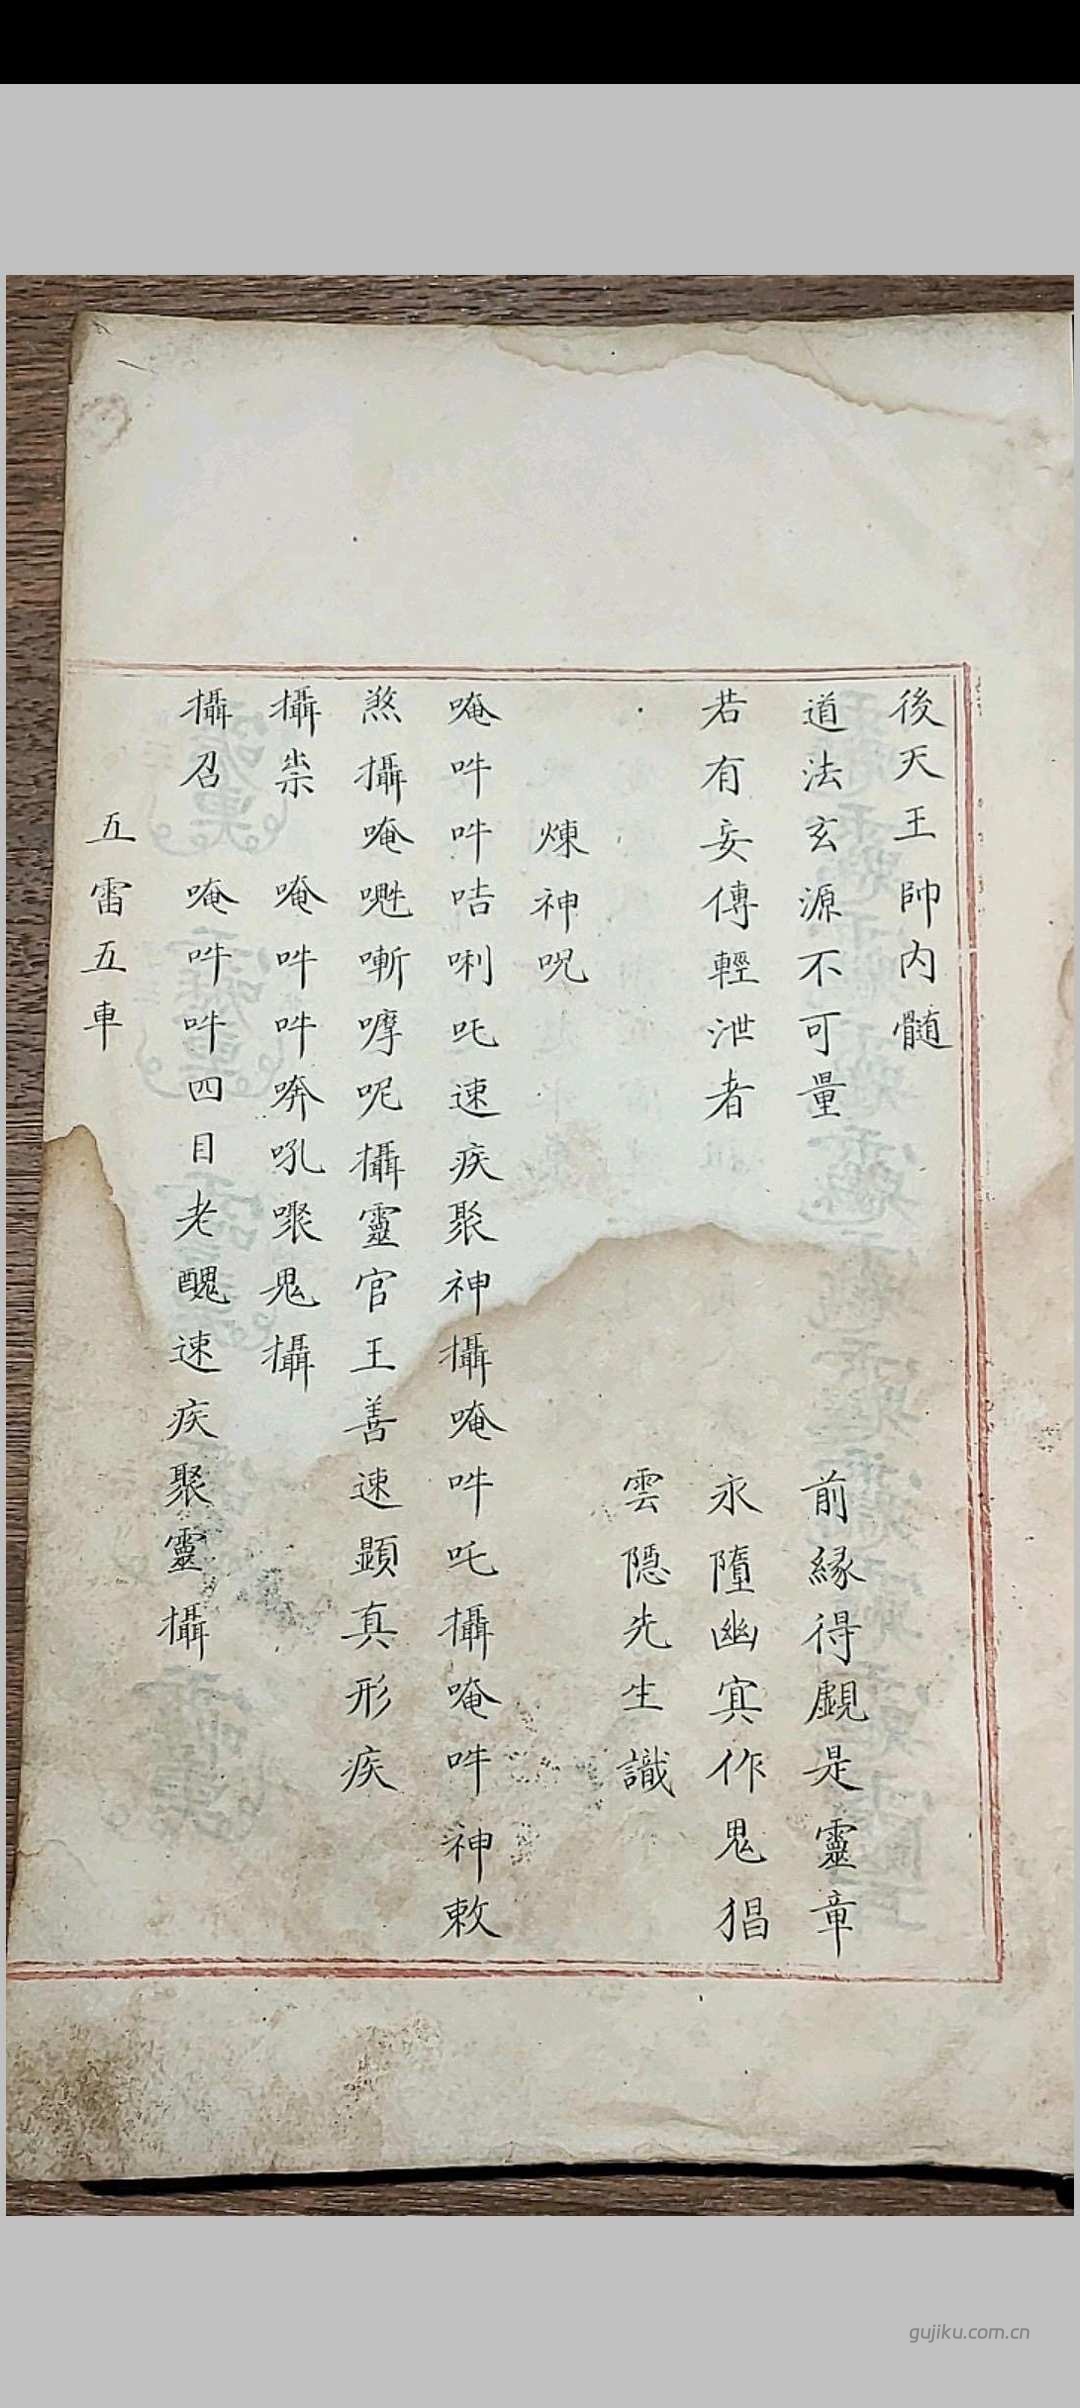 後天王帥內髓
道法玄源不可量 前縁得覩是靈章
若有妄傳輕泄者 永墮幽冥作鬼猖
雲隱先生識
煉神呪
唵吽吽咭唎吒速疾聚神攝唵吽吒攝唵吽神敕
煞攝唵嚉嘶嚤呢攝靈官王善速顕真形疾
攝祟 唵吽吽哛吼㗱鬼攝
攝召 唵吽吽四目老醜速疾聚靈攝
五雷五車
gujiku.com.cn